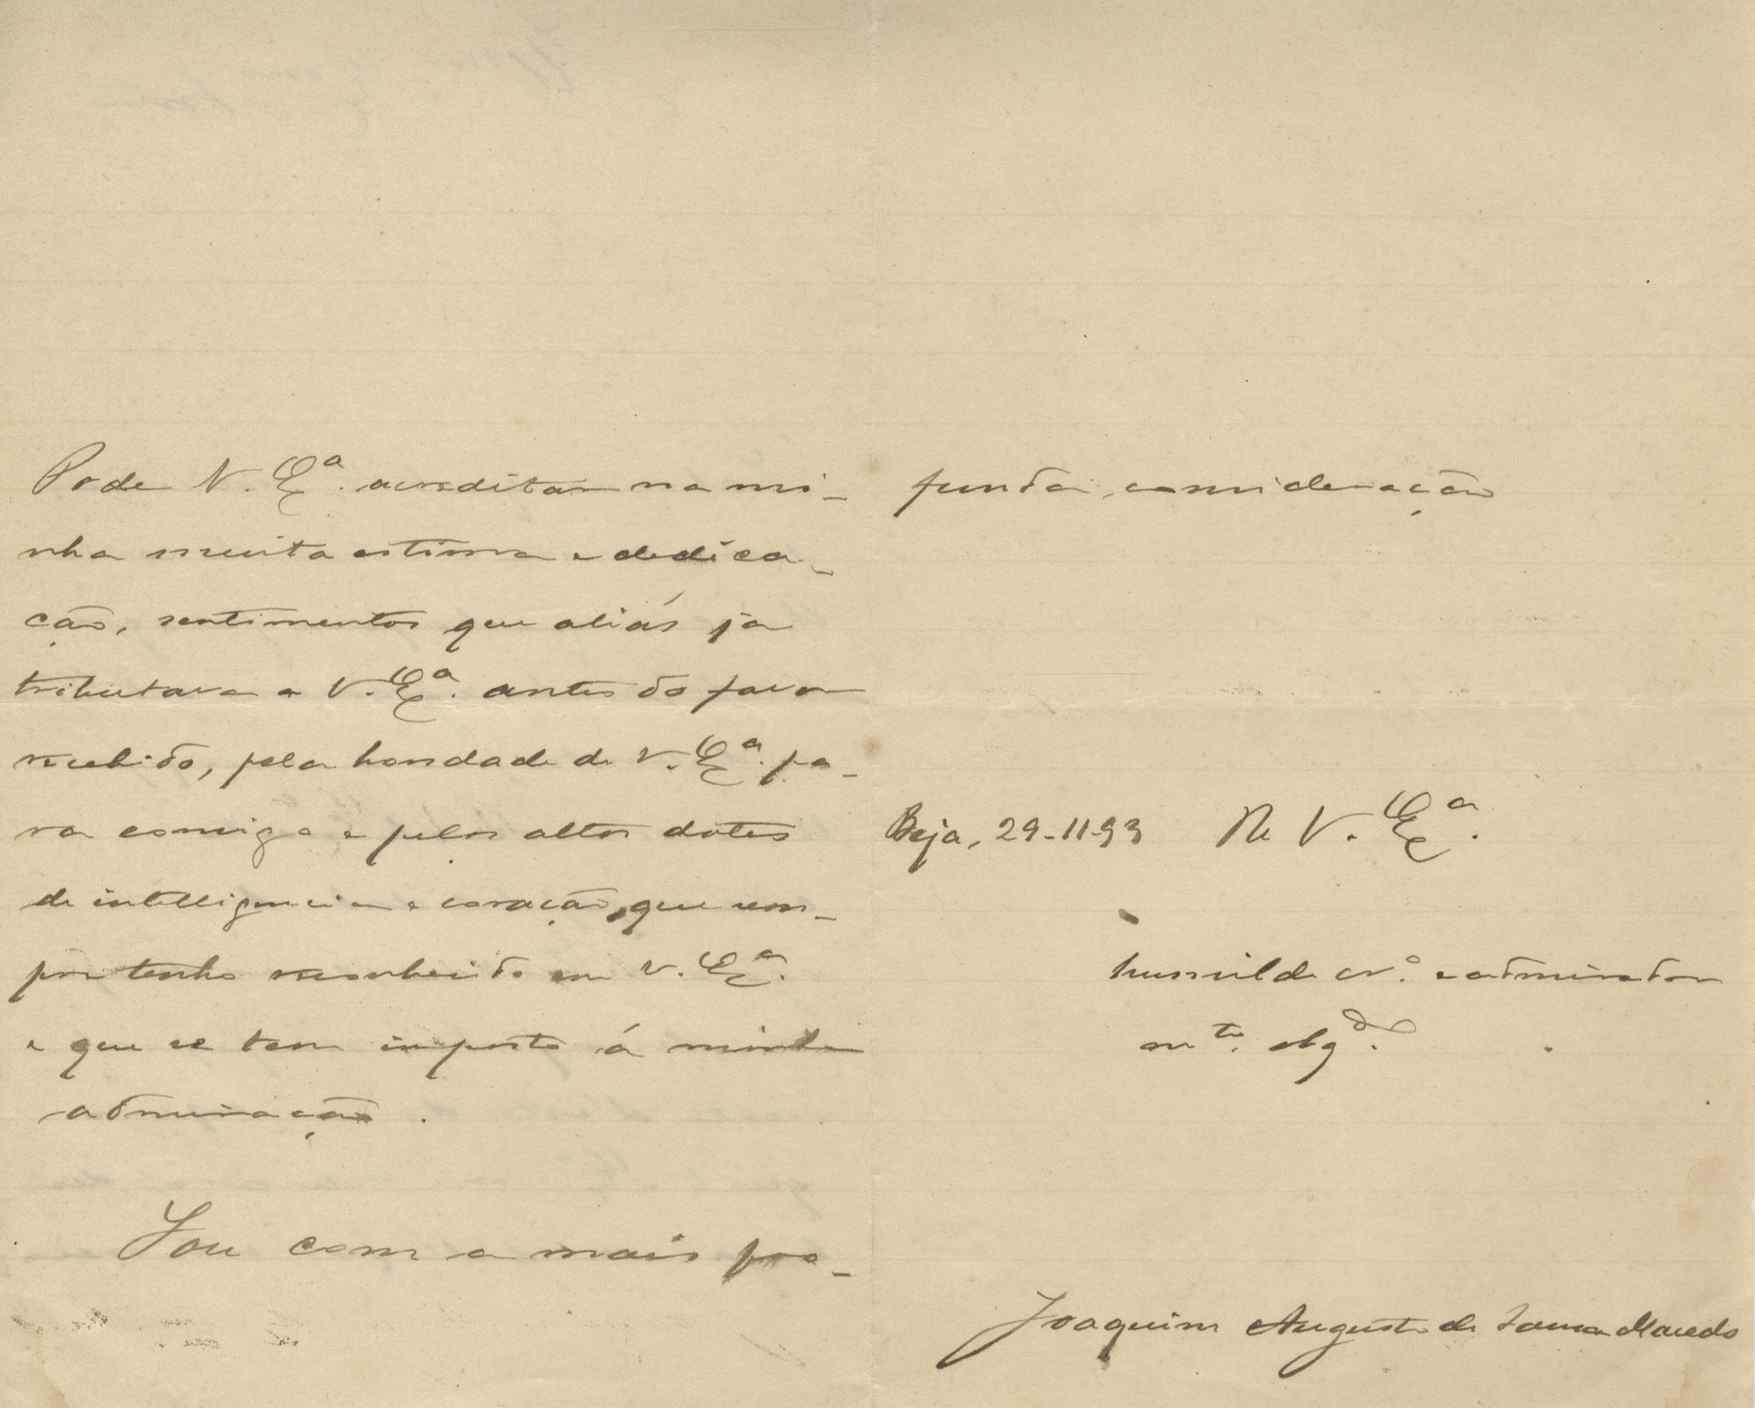 Pode V. Exª. acreditar na mi-
nha muita estima e dedica-
ção, sentimentos que aliás já
tributava a V. Exª. antes do favor
recebido, pela bondade de V. Exª. pa-
ra comigo e pelos altos dotes
de intelligencia e coração, que sem-
pre tenho reconhecido em V. Exª.
e que se tem imposto á minha
admiração.
Sou com a mais pro-
funda consideração
Beja, 29-11-93 De V. Exª.
humilde crº. e admirador
mto. obgdo.
Joaquim Augusto de Sousa Macedo